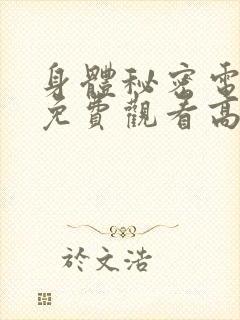 身體秘密電
免費觀看高
於文浩